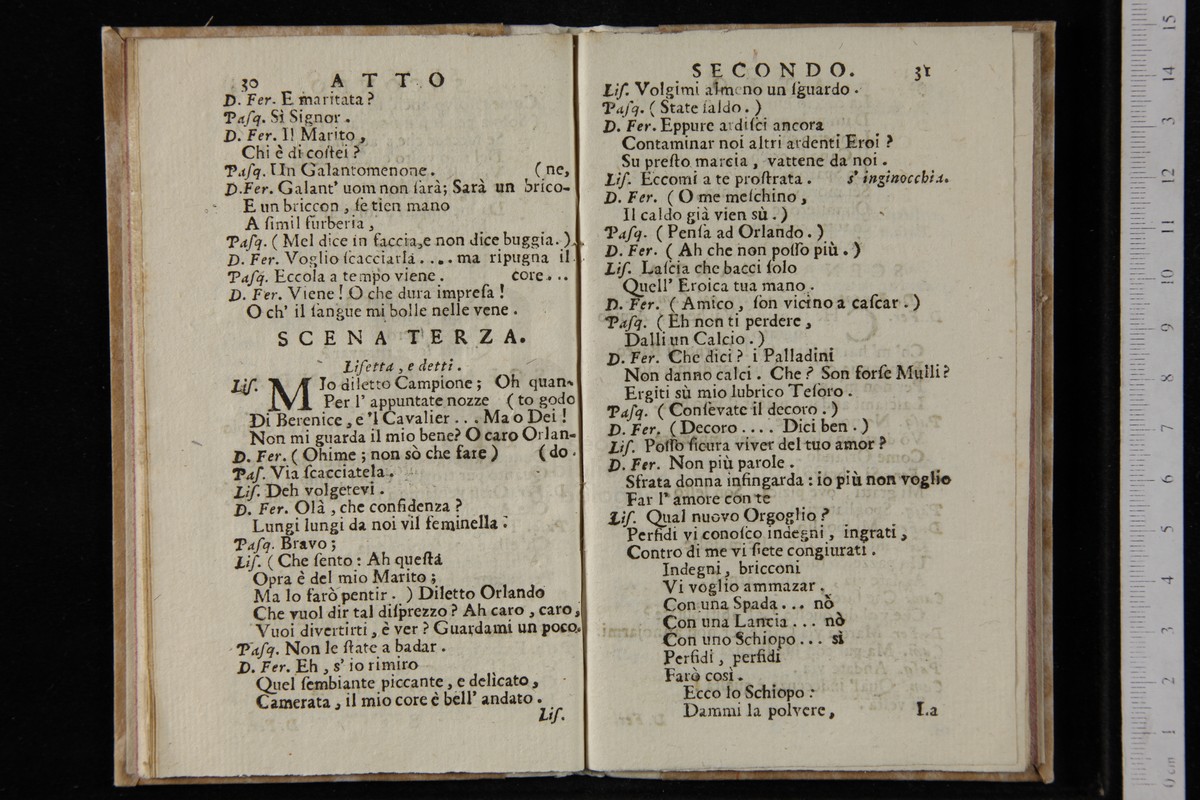 30 ATTO
D. Fer. E maritata?
Paſq. Sì Signor.
D. Fer. Il Marito,
Chi è di coſtei?
Paſq. Un Galantomenone. (ne,
D.Fer. Galant' uom non ſarà; Sarà un brico-
E un briccon, ſe tien mano
A ſimil furberia,
Paſq. (Mel dice in faccia,e non dice buggia.)
D. Fer. Voglio ſcacciarla.... ma ripugna il
Paſq. Eccola a tempo viene. core...
D. Fer. Viene! O che dura impreſa!
O ch' il ſangue mi bolle nelle vene.
SCENA TERZA.
Liſetta, e detti.
Liſ. MIo diletto Campione; Oh quan-
Per l' appuntate nozze (to godo
Di Berenice, e 'l Cavalier... Ma o Dei!
Non mi guarda il mio bene? O caro Orlan-
D. Fer. (Ohime; non sò che fare) (do.
Paſ. Via ſcacciatela.
Liſ. Deh volgetevi.
D. Fer. Olà, che confidenza?
Lungi lungi da noi vil feminella.
Paſq. Bravo;
Liſ. (Che ſento: Ah queſta
Opra è del mio Marito;
Ma lo farò pentir.) Diletto Orlando
Che vuol dir tal diſprezzo? Ah caro, caro,
Vuoi divertirti, è ver? Guardami un poco.
Paſq. Non le ſtate a badar.
D. Fer. Eh, s' io rimiro
Quel ſembiante piccante, e delicato,
Camerata, il mio core è bell' andato.
Liſ.
SECONDO. 31
Liſ. Volgimi almeno un ſguardo.
Paſq. (State ſaldo.)
D. Fer. Eppure ardiſci ancora
Contaminar noi altri ardenti Eroi?
Su preſto marcia, vattene da noi.
Liſ. Eccomi a te proſtrata. s' inginocchia.
D. Fer. (O me meſchino,
Il caldo già vien sù.)
Paſq. (Penſa ad Orlando.)
D. Fer. (Ah che non poſſo più.)
Liſ. Laſcia che bacci ſolo
Quell' Eroica tua mano.
D. Fer. (Amico, ſon vicino a caſcar.)
Paſq. (Eh non ti perdere,
Dalli un Calcio.)
D. Fer. Che dici? i Palladini
Non danno calci. Che? Son forſe Mulli?
Ergiti sù mio lubrico Teſoro.
Paſq. (Conſevate il decoro.)
D. Fer. (Decoro.... Dici ben.)
Liſ. Poſſo ſicura viver del tuo amor?
D. Fer. Non più parole.
Sfrata donna infingarda: io più non voglio
Far l' amore con te
Liſ. Qual nuovo Orgoglio?
Perfidi vi conoſco indegni, ingrati,
Contro di me vi ſiete congiurati.
Indegni, bricconi
Vi voglio ammazar.
Con una Spada... nò
Con una Lancia... nò
Con uno Schiopo... sì
Perfidi, perfidi
Farò così.
Ecco lo Schiopo:
Dammi la polvere, La
0 cm 1 2 3 4 5 6 7 8 9 10 11 12 13 14 15